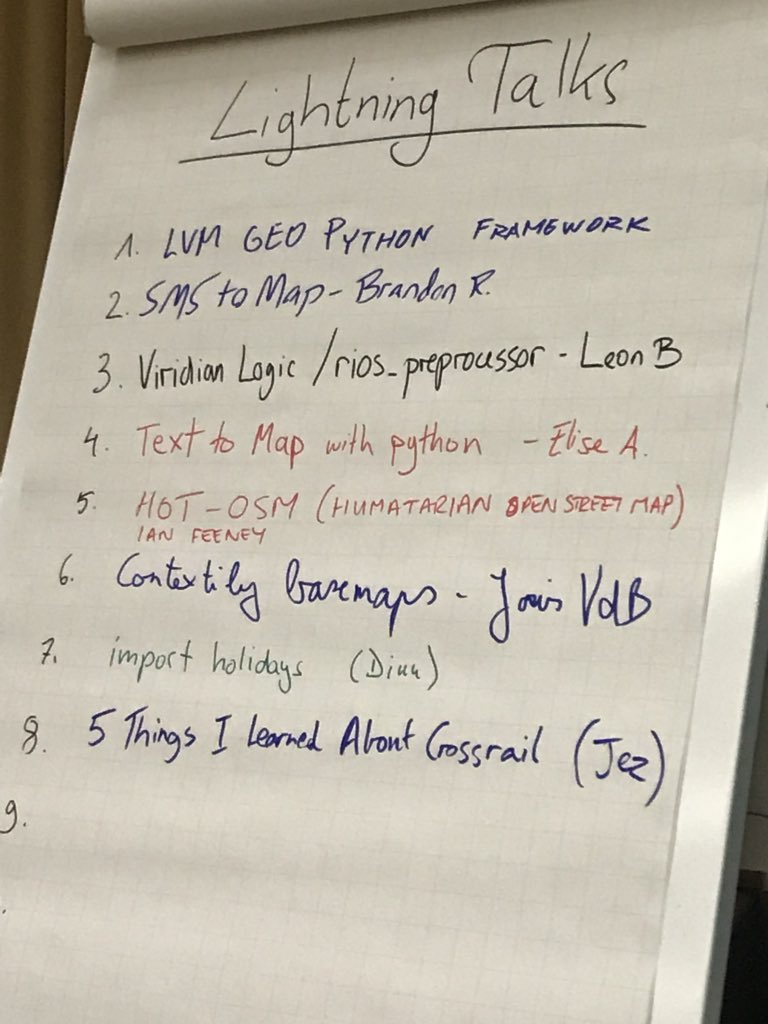 Lightning Talks
1. LVM GEO PYTHON FRAMEWORK
2. SMS to Map - Brandon R.
3. Viridian Logic /rios_preprocessor - Leon B
4. Text to Map with python - Elise A.
5. HOT-OSM (HUMATARIAN OPEN STREET MAP)
IAN FEENEY
6. Contextily basemaps - Joris VdB
7. import holidays
8. 5 Things I Learned About Crossrail (Jez)
9.